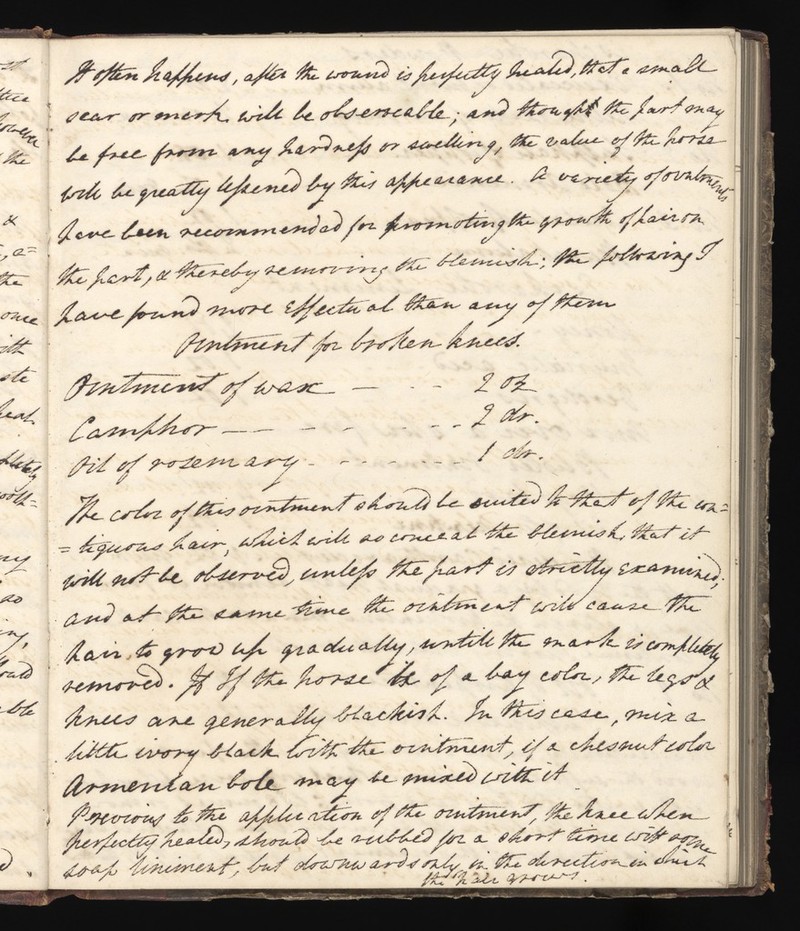 It often happens, after the wound is perfectly healed, that a small
scar or mark will be observeable; and though the part may
be free from any hardness or swelling, the value of the horse
will be greatly lessened by this appearance. A variety of ointments
have been recommended for promoting the growth of hair on
the part, & thereby removing the blemish; the following I
have found more effectual than any of them
Ointment for broken knees.
Ointment of wax - - - 2 oz
Camphor - - - - - - 2 dr.
Oil of rosemary - - - - - - 1 dr.
The color of this ointment should be suited to that of the con=
=tiguous hair, which will so conceal the blemish, that it
will not be observed, unless the part is strictly examined;
and at the same time the ointment will cause the
hair to grow up gradually, untill the mark is completely
removed. If If the horse is of a bay color, the legs &
knees are generally blackish. In this case, mix a
little ivory black with the ointment, if a chesnut color
Armenian bole may be mixed with it
Previous to the application of the ointment, the knee when
perfectly healed, should be rubbed for a short time with some
soap liniment, but downwards only in the direction in which
the hair grows.